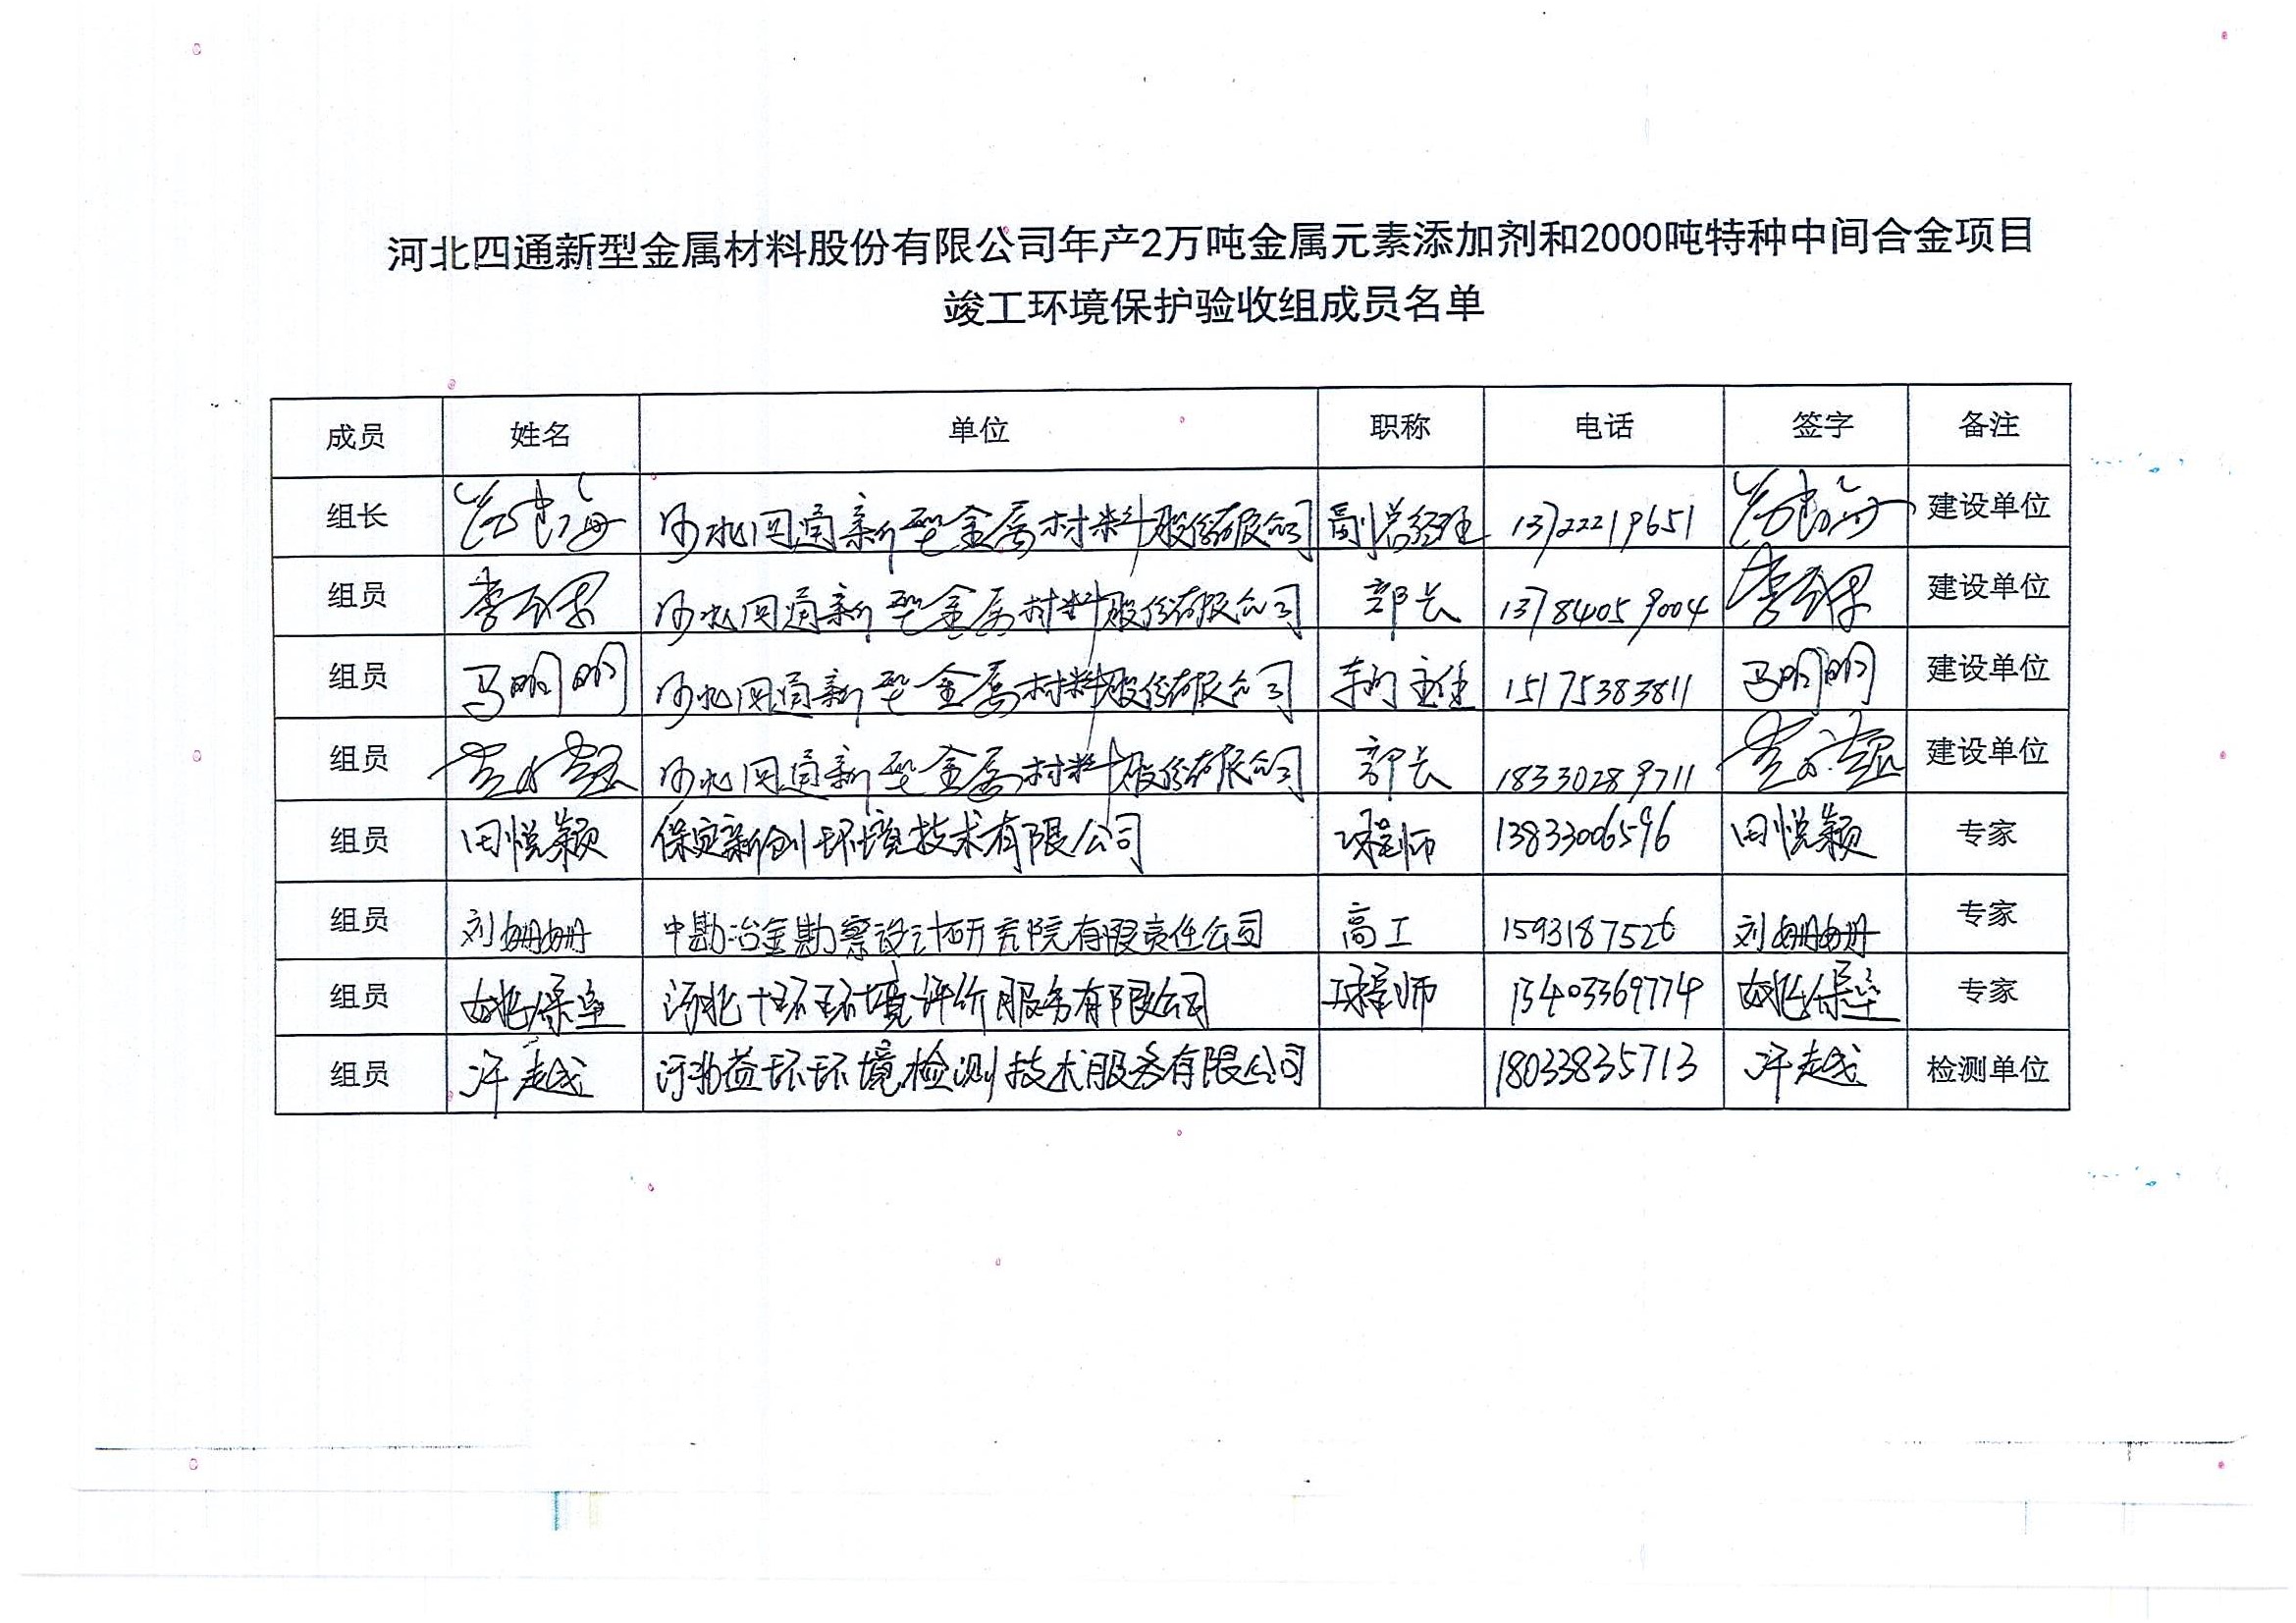 河北四通新型金属材料股份有限公司年产2万吨金属元素添加剂和2000吨特种中间合金项目
竣工环境保护验收组成员名单
成员 姓名 单位 职称 电话 签字 备注
组长 河北四通新型金属材料股份有限公司 副总经理 13722219651 建设单位
组员 河北四通新型金属材料股份有限公司 部长 13784059004 建设单位
组员 马明明 河北四通新型金属材料股份有限公司 车间主任 15175383811 马明明 建设单位
组员 河北四通新型金属材料股份有限公司 部长 18330289711 建设单位
组员 田悦颖 保定新创环境技术有限公司 工程师 13833006596 田悦颖 专家
组员 刘姗姗 中勘冶金勘察设计研究院有限责任公司 高工 1593187526 刘姗姗 专家
组员 姚保垒 河北十环环境评价服务有限公司 工程师 15403369774 姚保垒 专家
组员 许越 河北益环环境检测技术服务有限公司 18033835713 许越 检测单位